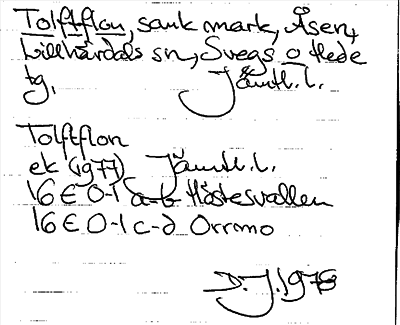 Tolftflon, sank mark, Åsen,
Lillhärdals sn, Svegs o Hede
tg, Jämtl. l.
Tolftflon
ek (1977) Jämtl. l.
16 E 0-1 a-b Höstesvallen
16 E 0-1 c-d Orrmo
D. J. 1978